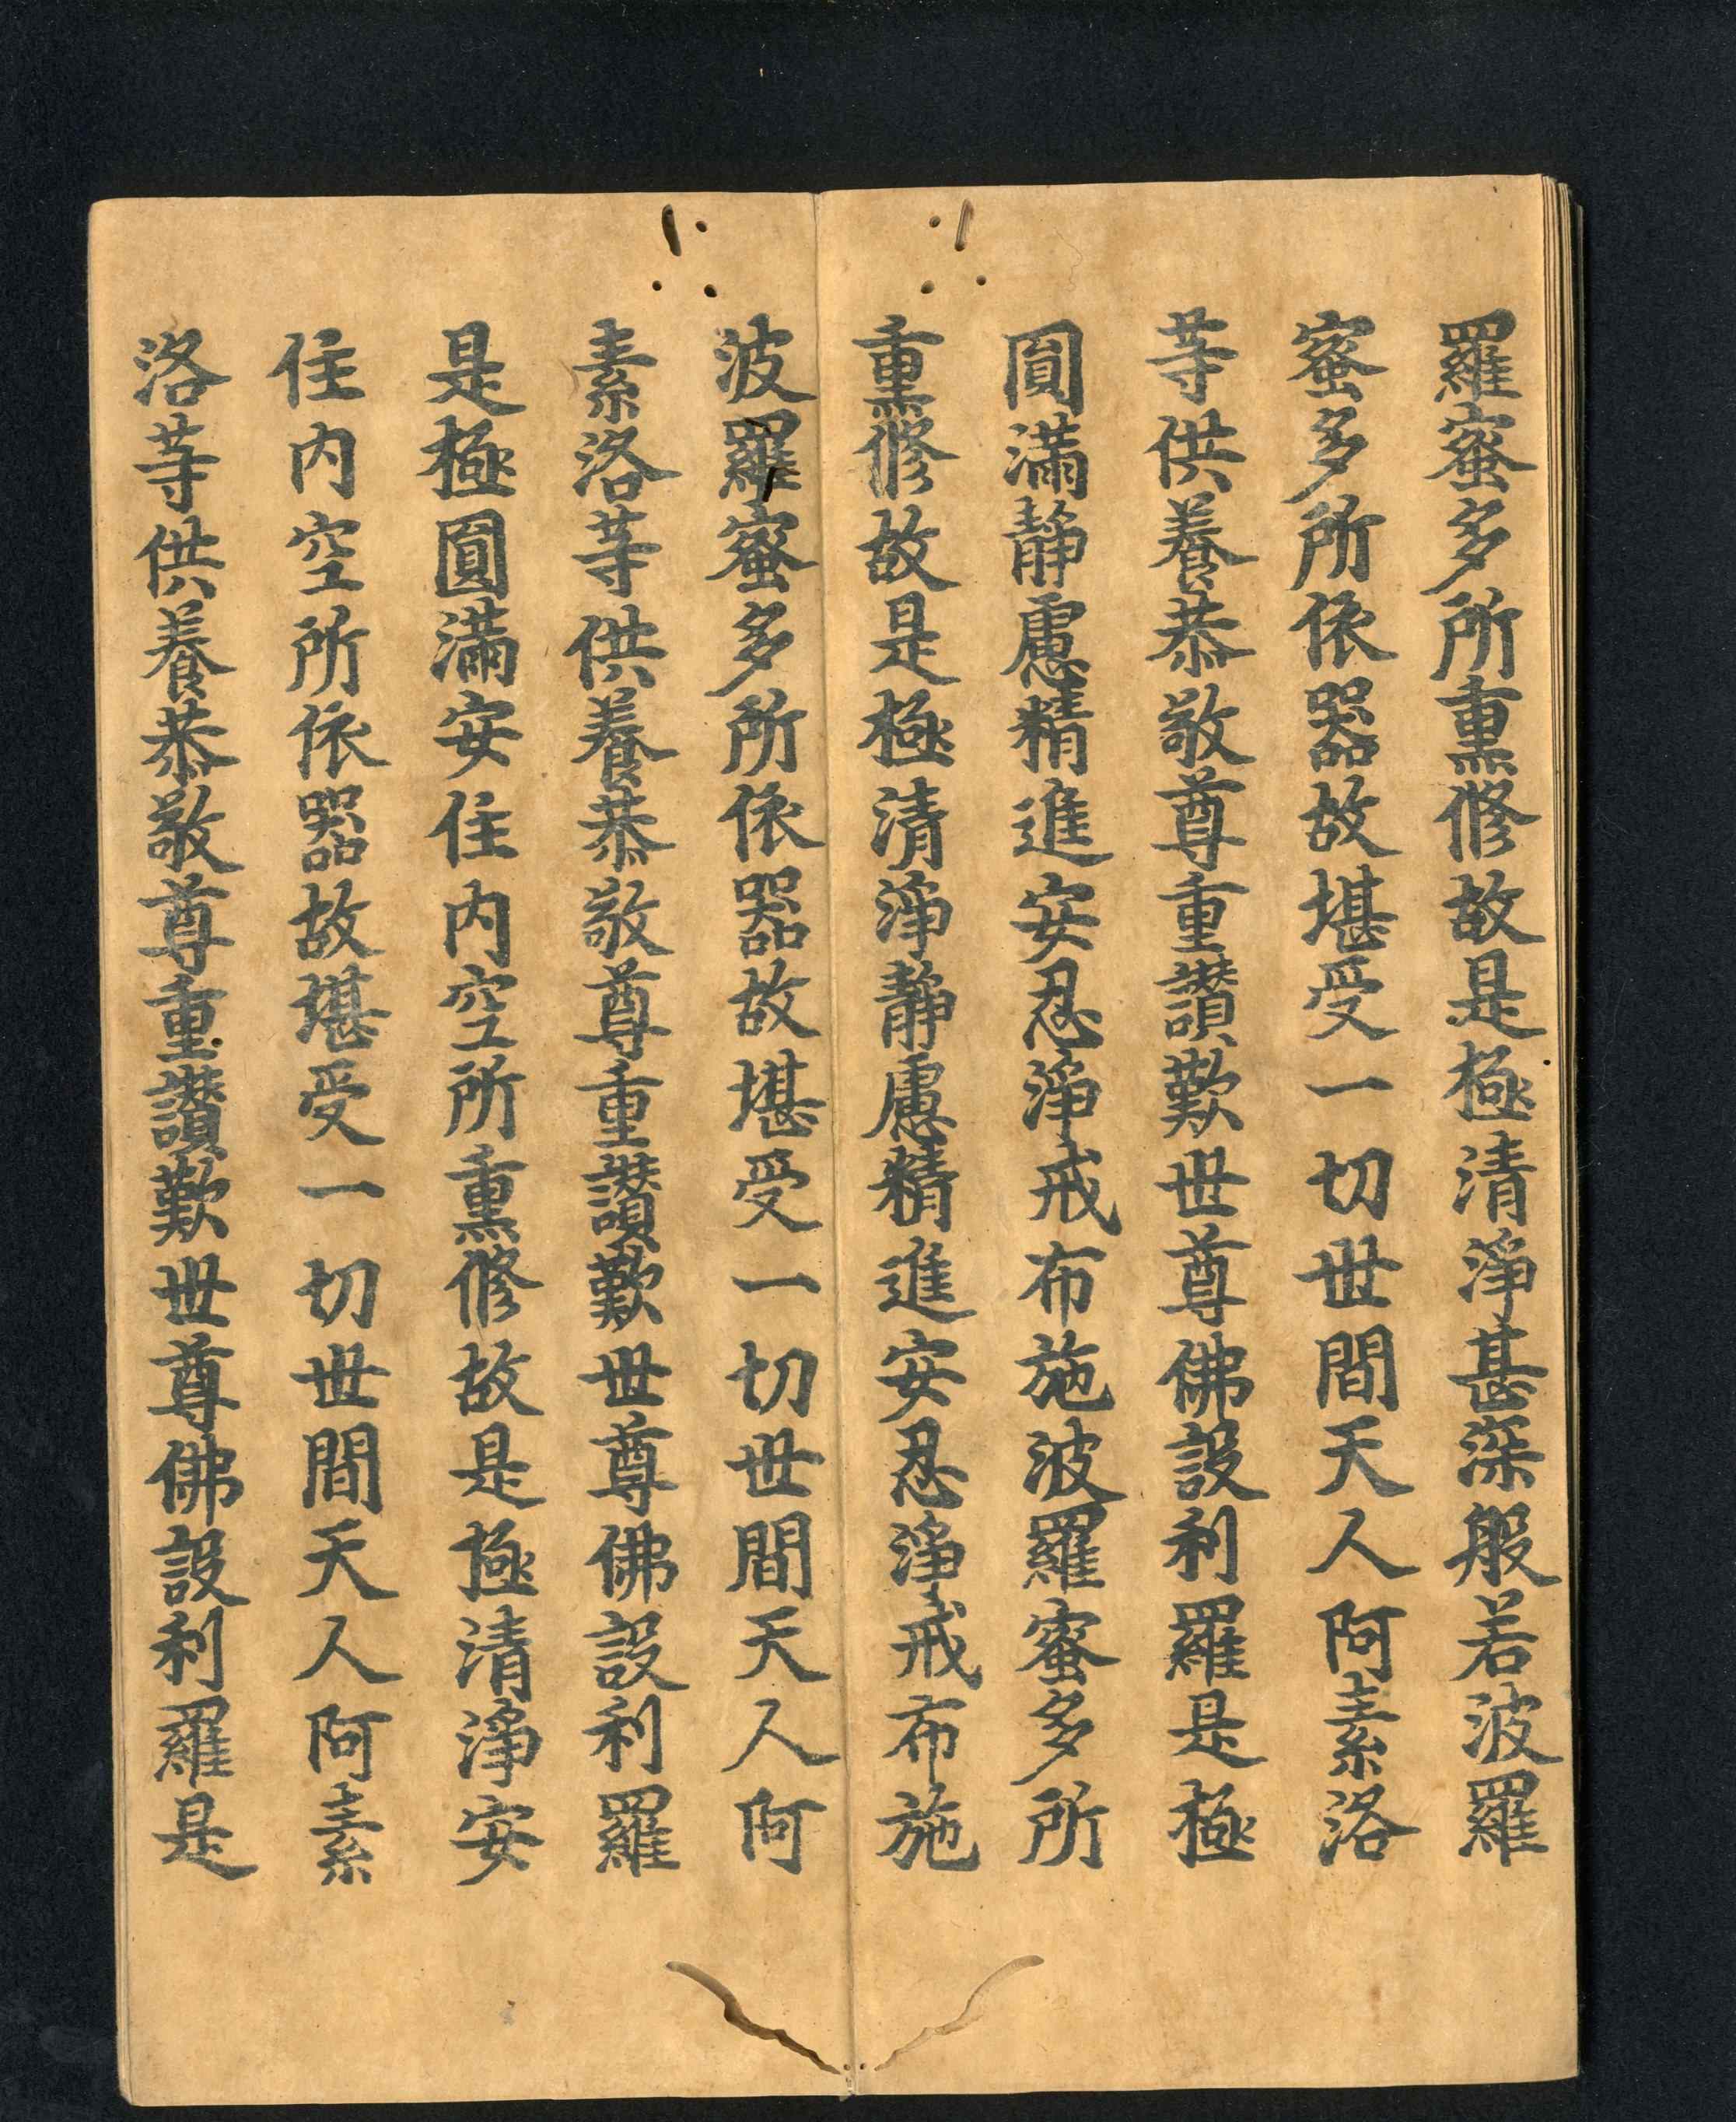 羅蜜多所熏修故是極清淨甚深般若波羅
蜜多所依器故堪受一切世間天人阿素洛
等供養恭敬尊重讚歎世尊佛設利羅是極
圓滿靜慮精進安忍淨戒布施波羅蜜多所
熏修故是極清淨靜慮精進安忍淨戒布施
波羅蜜多所依器故堪受一切世間天人阿
素洛等供養恭敬尊重讚歎世尊佛設利羅
是極圓滿安住內空所熏修故是極清淨安
住內空所依器故堪受一切世間天人阿素
洛等供養恭敬尊重讚歎世尊佛設利羅是